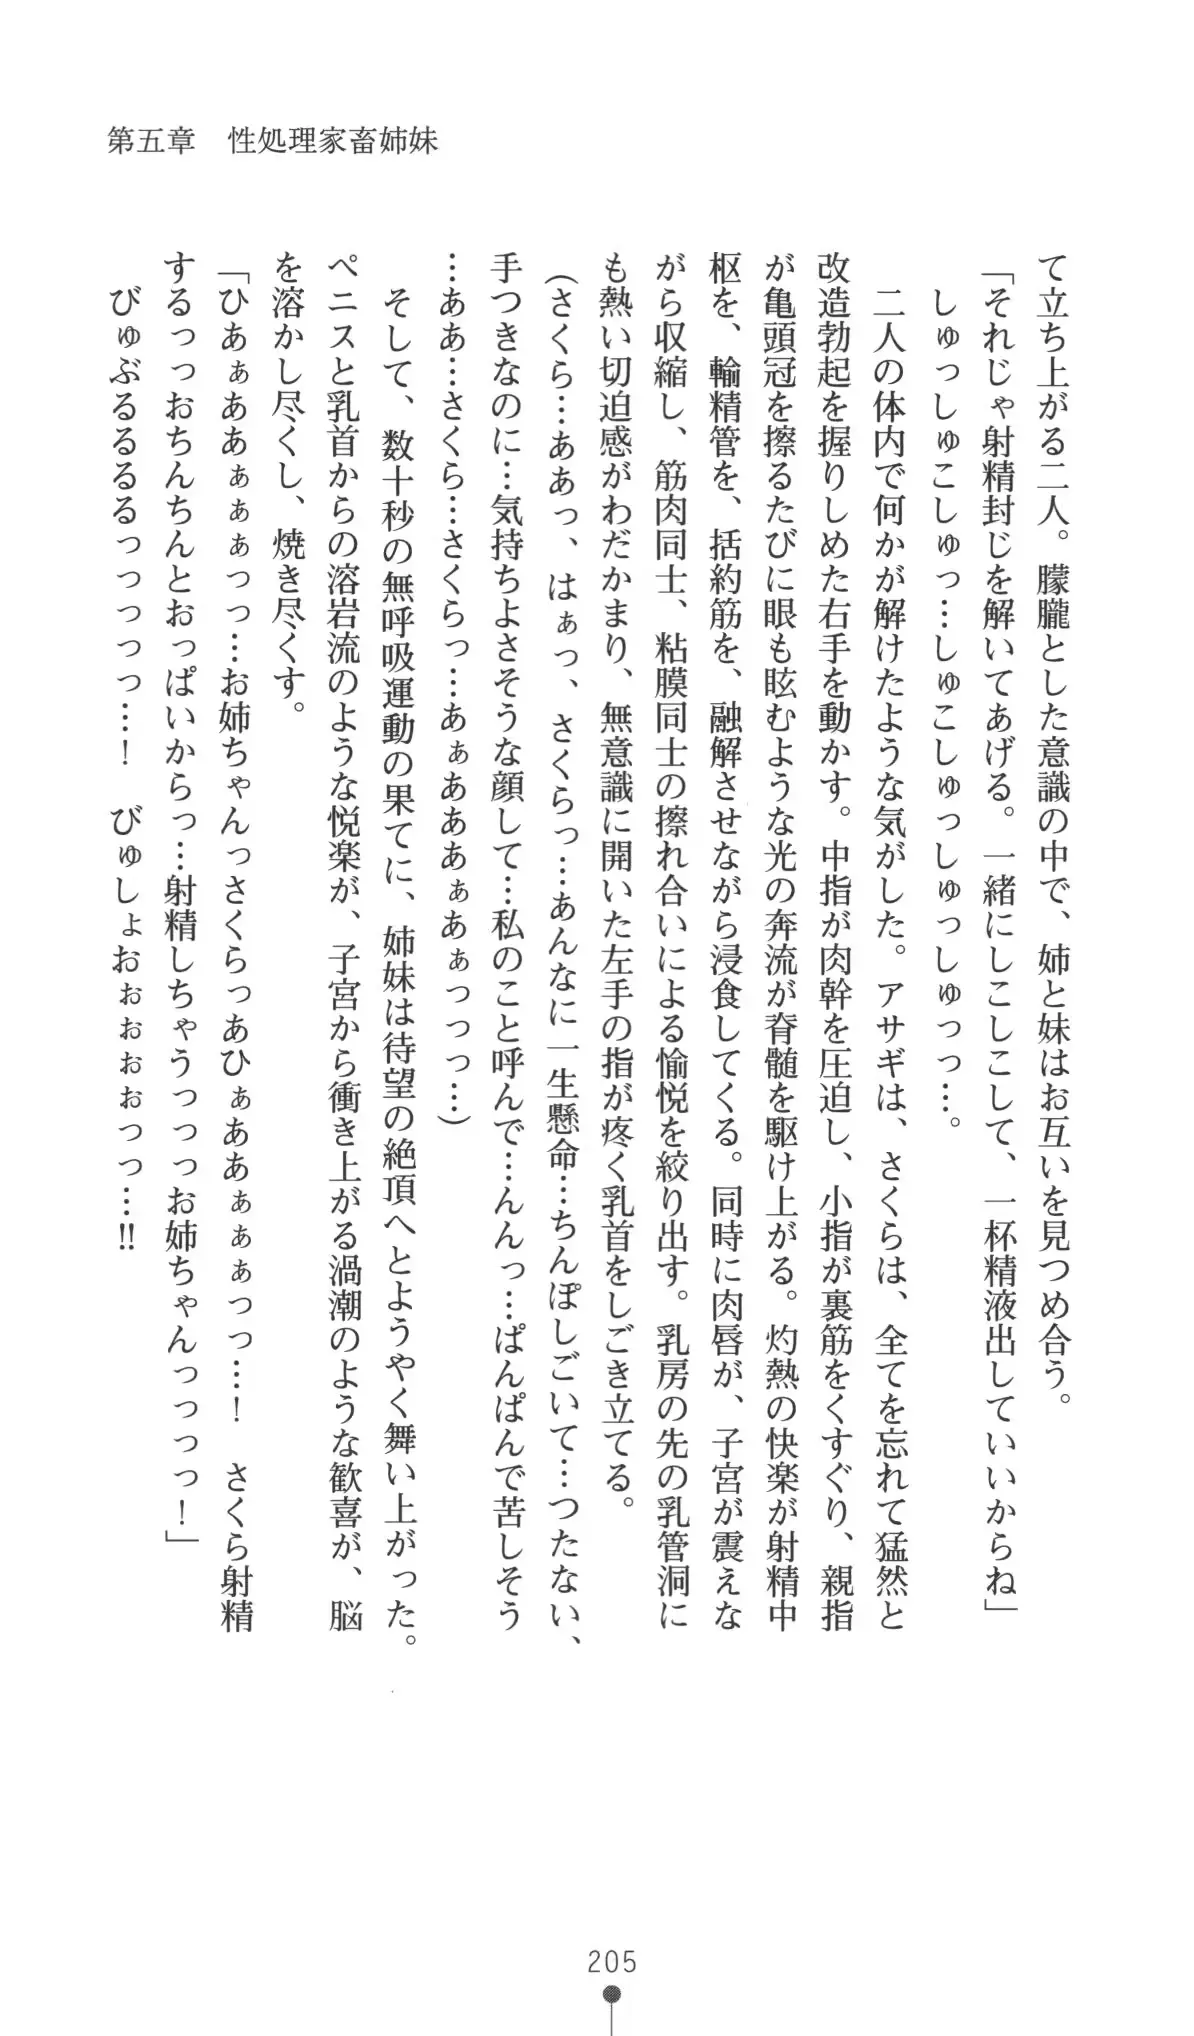 第五章　性処理家畜姉妹
て立ち上がる二人。朦朧とした意識の中で、姉と妹はお互いを見つめ合う。
「それじゃ射精封じを解いてあげる。一緒にしこしこして、一杯精液出していいからね」
しゅっしゅこしゅっ…しゅこしゅっしゅっしゅっっ…。
二人の体内で何かが解けたような気がした。アサギは、さくらは、全てを忘れて猛然と
改造勃起を握りしめた右手を動かす。中指が肉幹を圧迫し、小指が裏筋をくすぐり、親指
が亀頭冠を擦るたびに眼も眩むような光の奔流が脊髄を駆け上がる。灼熱の快楽が射精中
枢を、輸精管を、括約筋を、融解させながら浸食してくる。同時に肉唇が、子宮が震えな
がら収縮し、筋肉同士、粘膜同士の擦れ合いによる愉悦を絞り出す。乳房の先の乳管洞に
も熱い切迫感がわだかまり、無意識に開いた左手の指が疼く乳首をしごき立てる。
（さくら…ああっ、はぁっ、さくらっ…あんなに一生懸命…ちんぽしごいて…つたない、
手つきなのに…気持ちよさそうな顔して…私のこと呼んで…んんっ…ぱんぱんで苦しそう
…ああ…さくら…さくらっ…あぁあああぁあぁっっっ…）
そして、数十秒の無呼吸運動の果てに、姉妹は待望の絶頂へとようやく舞い上がった。
ペニスと乳首からの溶岩流のような悦楽が、子宮から衝き上がる渦潮のような歓喜が、脳
を溶かし尽くし、焼き尽くす。
「ひあぁああぁぁぁっっ…お姉ちゃんっさくらっあひぁああぁぁぁっっ…！　さくら射精
するっっおちんちんとおっぱいからっ…射精しちゃうっっっお姉ちゃんっっっっ！」
びゅぶるるるるっっっっっっ…！　びゅしょおぉぉぉぉっっ…‼
205